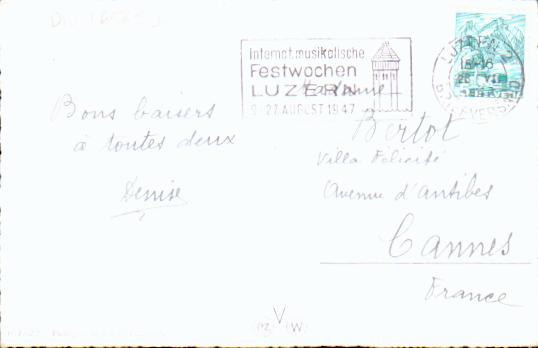 Internat. musikalische
Festwochen
LUZERN
9.-27. AUGUST 1947
LUZERN 2
Bons baisers
à toutes deux
Denise
Madame
Bertot
Villa Félicité
Avenue d'Antibes
Cannes
France